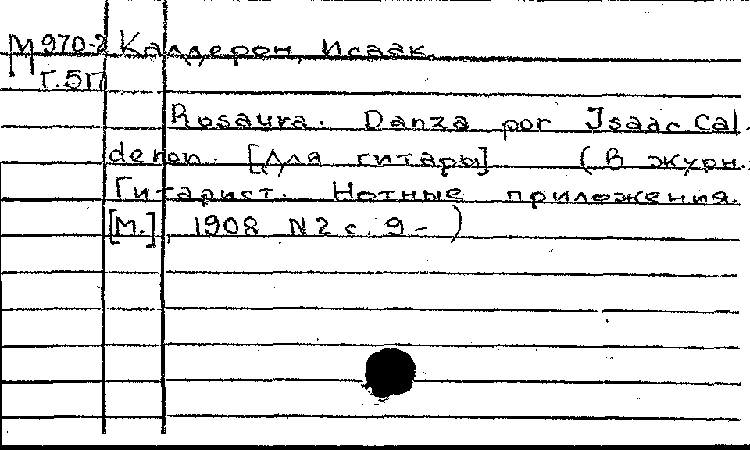 М 970-2 Калдерон, Исаак.
Г.5п
Rosaura. Danza por Isaac Cal-
deron. [Для гитары] (В журн.:
Гитарист. Нотные приложения.
[М.], 1908 N 2 с. 9- )